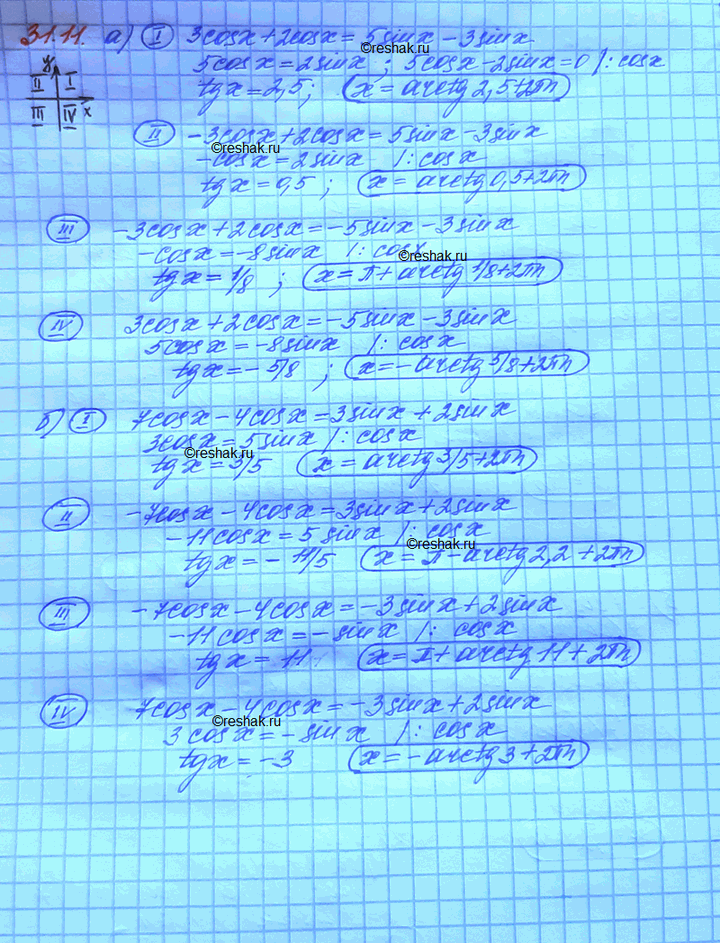 31.11. а) I 3cosx+2cosx=5sinx-3sinx
©reshak.ru
5cosx=2sinx; 5cosx-2sinx=0 |:cosx
tgx=2,5; x=arctg2,5+2πn
y
II I
III IV x
II -3cosx+2cosx=5sinx-3sinx
©reshak.ru
-cosx=2sinx |:cosx
tgx=0,5; x=arctg0,5+2πn
III -3cosx+2cosx=-5sinx-3sinx
-cosx=-8sinx |:cosx
©reshak.ru
tgx=1/8; x=π+arctg1/8+2πn
IV 3cosx+2cosx=-5sinx-3sinx
5cosx=-8sinx |:cosx
tgx=-5/8; x=-arctg5/8+2πn
б) I 7cosx-4cosx=3sinx+2sinx
3cosx=5sinx |:cosx
©reshak.ru
tgx=3/5 x=arctg3/5+2πn
II -7cosx-4cosx=3sinx+2sinx
-11cosx=5sinx |:cosx
©reshak.ru
tgx=-11/5 x=π-arctg2,2+2πn
III -7cosx-4cosx=-3sinx+2sinx
-11cosx=-sinx |:cosx
tgx=11 x=π+arctg11+2πn
IV 7cosx-4cosx=-3sinx+2sinx
©reshak.ru
3cosx=-sinx |:cosx
tgx=-3 x=-arctg3+2πn